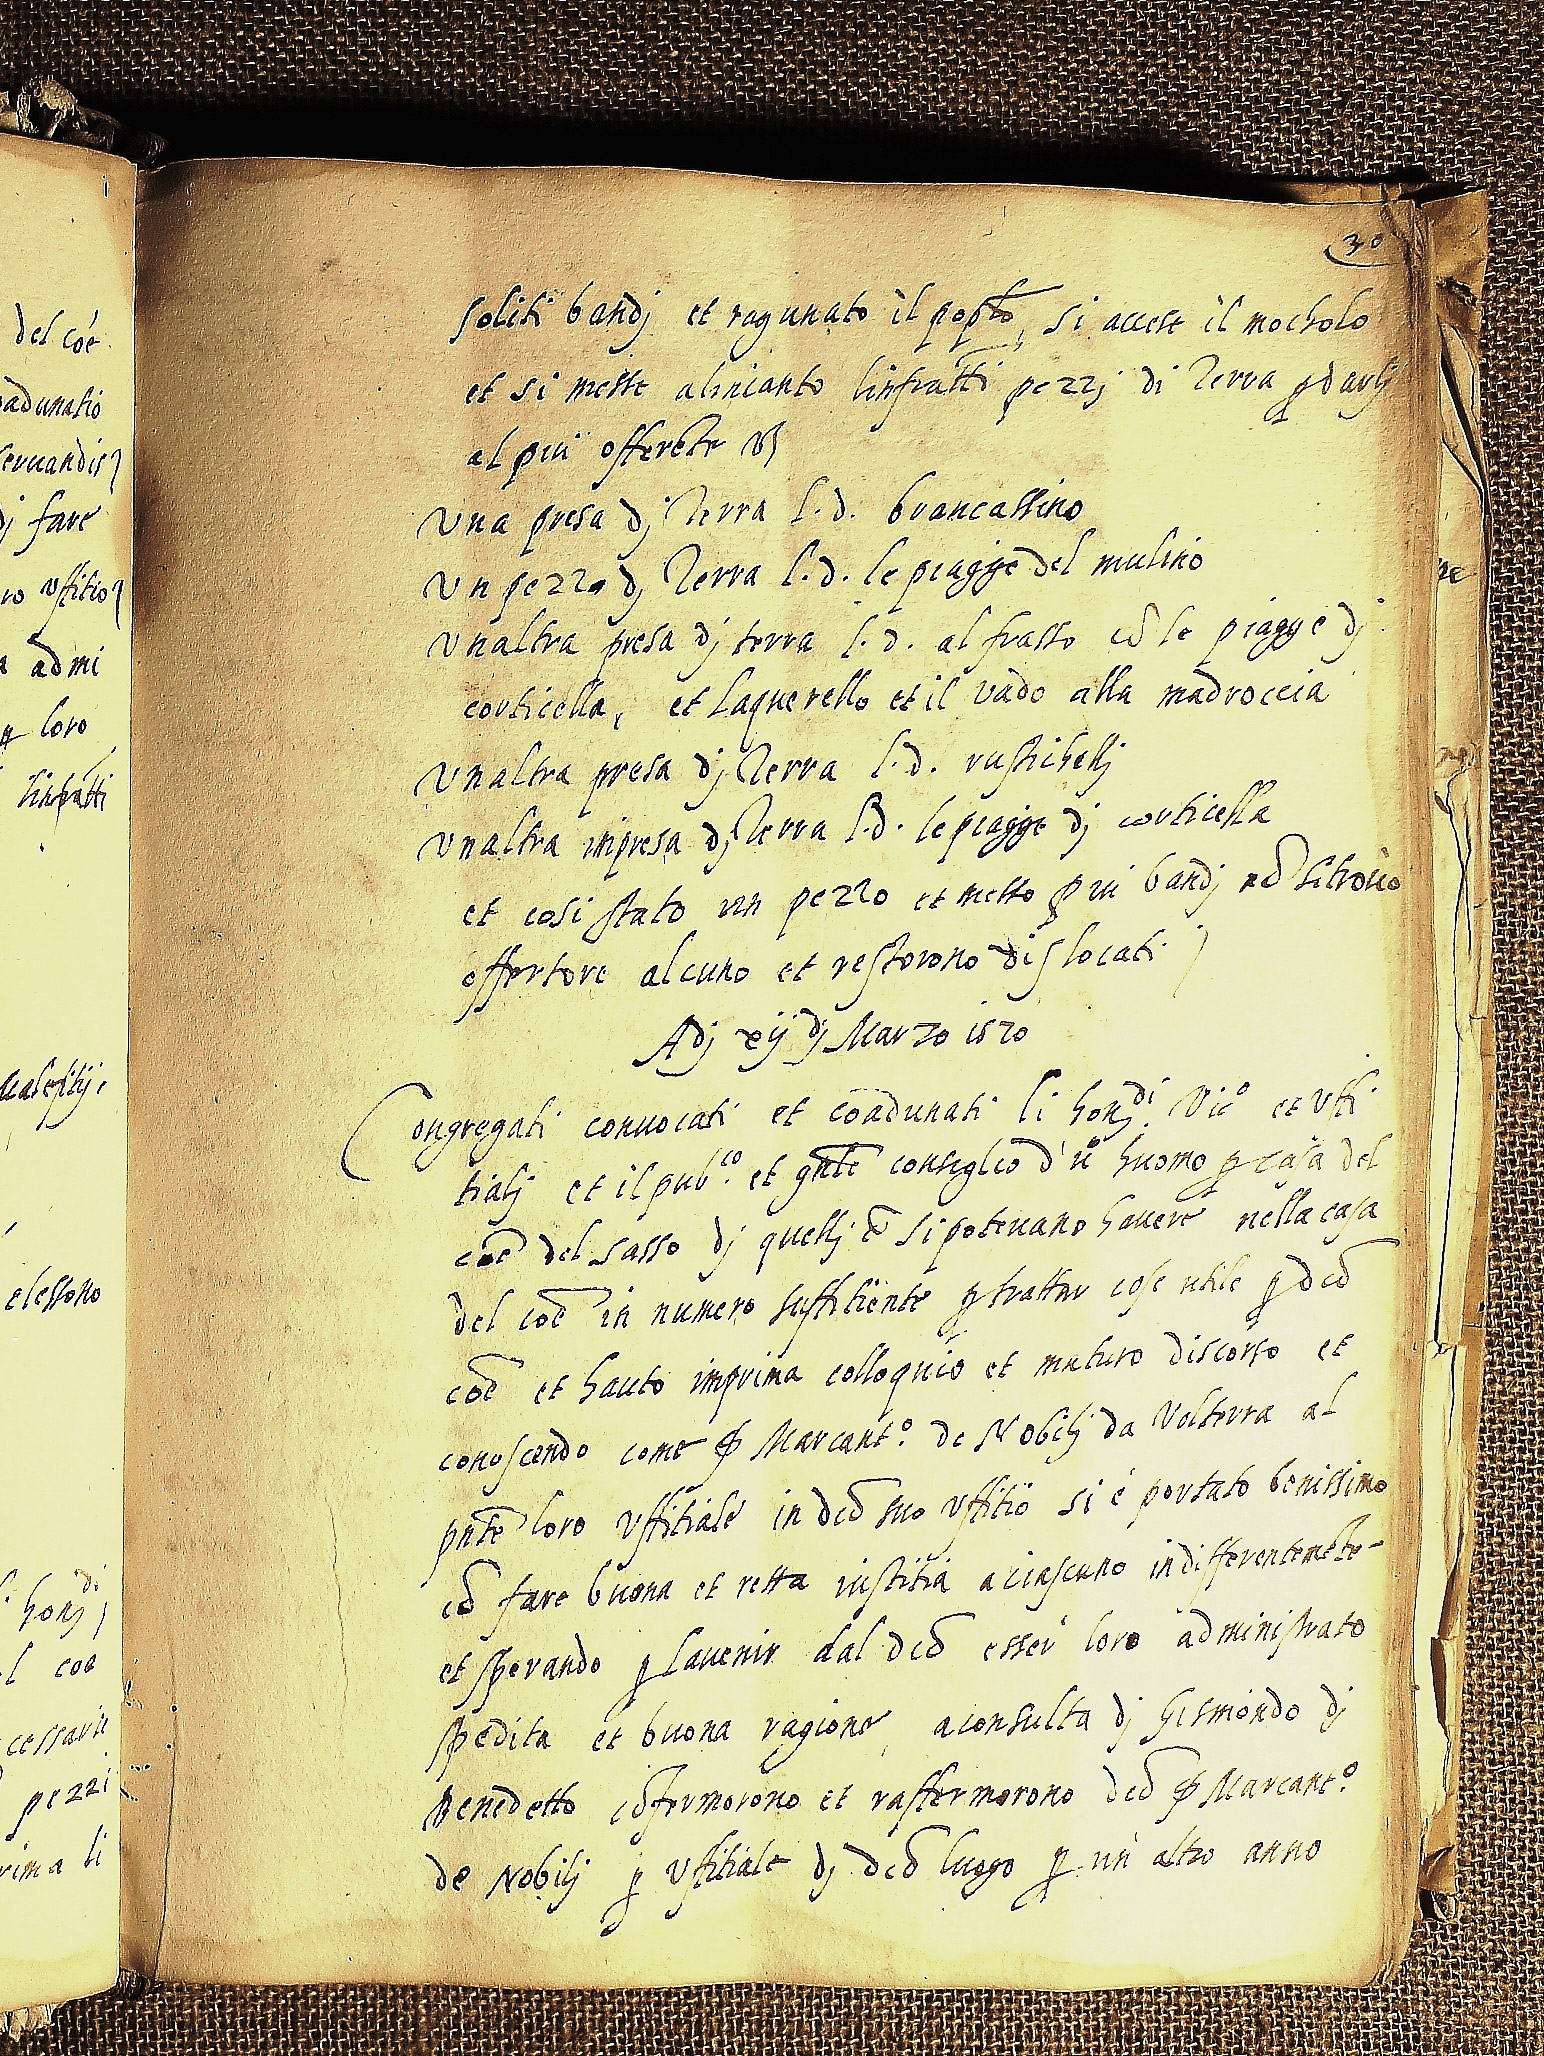 30
soliti bandj et ragunato il poplo, si accese il mocholo
et si messe alincanto linfratti pezzj di Terra p darlj
al piu offerete
una presa dj Terra l.d. brancassino
un pezzo dj Terra l.d. le piagge del mulino
unaltra presa dj terra l.d. al frasso cō le piagge dj
corticella, et Laquerello et il vado alla madroccia
unaltra presa dj Terra l.d. rustichellj
unaltra impresa dj Terra l.d. le piagge dj corticella
et cosi stato un pezzo et messo piu bandj nō si trovo
offertore alcuno et restorono dislocati
Adj xij dj Marzo 1570
Congregati convocati et coadunati li hondi. Vico et uffi
tialj et il pubco. et gnle consiglio d'ū huomo p casa del
coē del sasso dj quellj cē si potevano havere nella casa
del coē in numero suffitiente p trattar cose utile p dcō
coē et hauto imprima colloquio et maturo discorso et
conoscendo come Marcanto. de Nobilj da Volterra al
pnte loro uffitiale in dcō suo uffitio si è portato benissimo
cō fare buona et retta iustitia a ciascuno indifferentemēte
et sperando p lavenir dal dcō esser loro administrato
spedita et buona ragione, aconsulta dj Gismondo dj
benedetto cōfermorono et raffermorono dcō Marcanto.
de Nobilj p uffitiale dj dcō luogo p un altro anno
del coē
fare
admi
loro
linfratti
elessono
pezzi